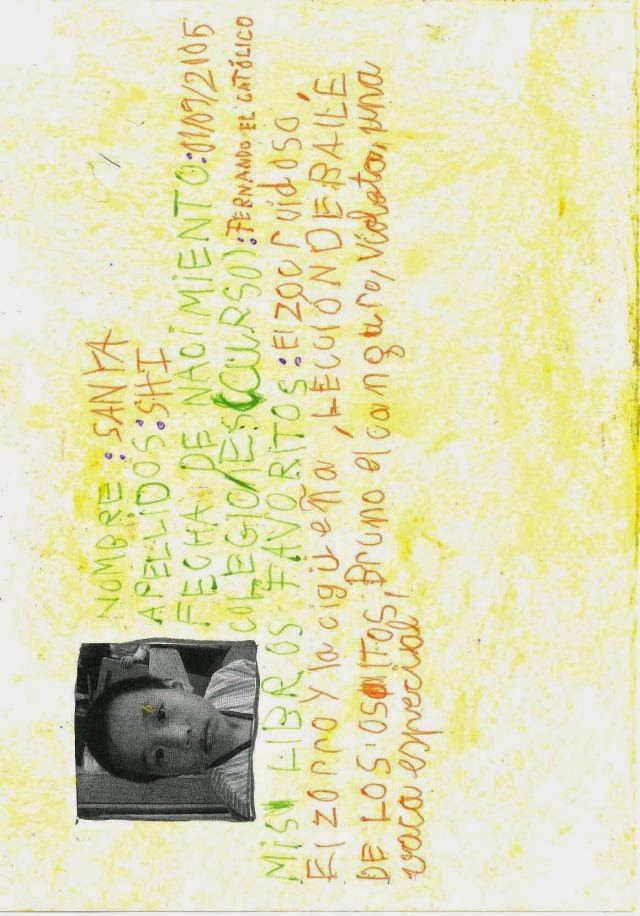 NOMBRE: SANYA
APELLIDOS: SHI
FECHA DE NACIMIENTO: 01/09/2005
COLEGIO/IES (CURSO): FERNANDO EL CATÓLICO
MIS LIBROS FAVORITOS: El zoo ruidoso
El zorro y la cigüeña, LECCIÓN DE BAILE
DE LOS OSITOS, Bruno el canguro, Violeta, una
vaca especial,